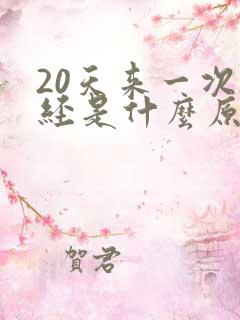 20天来一次
经是什麽原
賀君